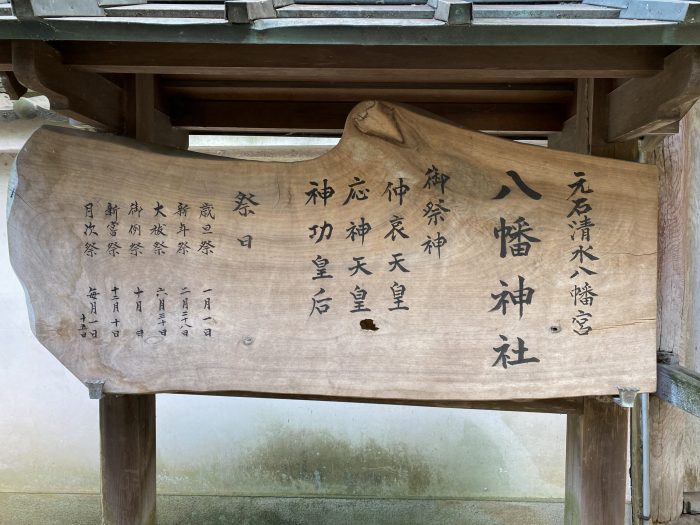 元石清水八幡宮
八幡神社
御祭神
仲哀天皇
応神天皇
神功皇后
祭日
歳旦祭 一月一日
新年祭 二月二十八日
大祓祭 六月三十日
御例祭 十月 日
新嘗祭 十二月十日
月次祭 毎月一日十五日